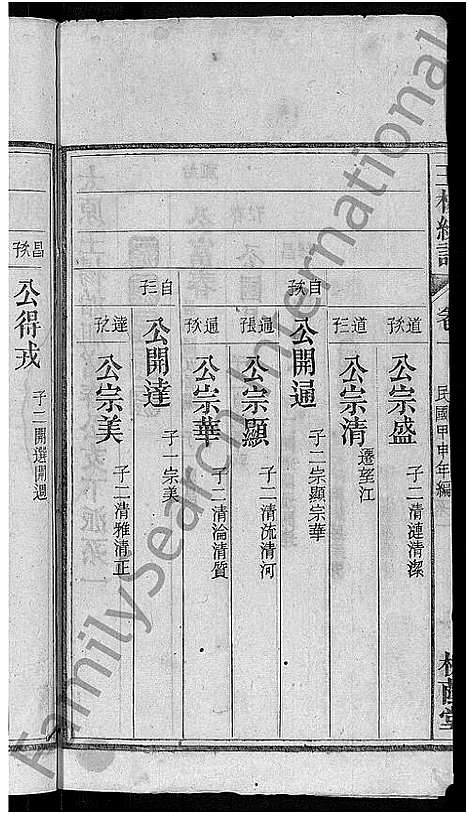 民國甲申年編
道
公宗盛
子二清漣清潔
道
公宗清
遷望江
自
公開通
子二宗顯宗華
通
公宗顯
子二清流清河
通
公宗華
子二清淪清質
自
公開達
子一宗美
達
公宗美
子二清雅清正
昌
公得戎
子二開選開週
FamilySearch International